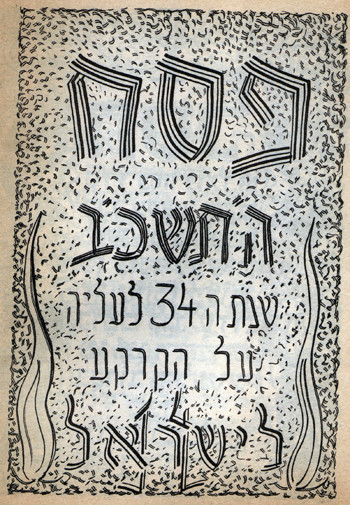 פסח
ה'תשכ"ב
שנת ה 34 לעליה
על הקרקע
לישראל